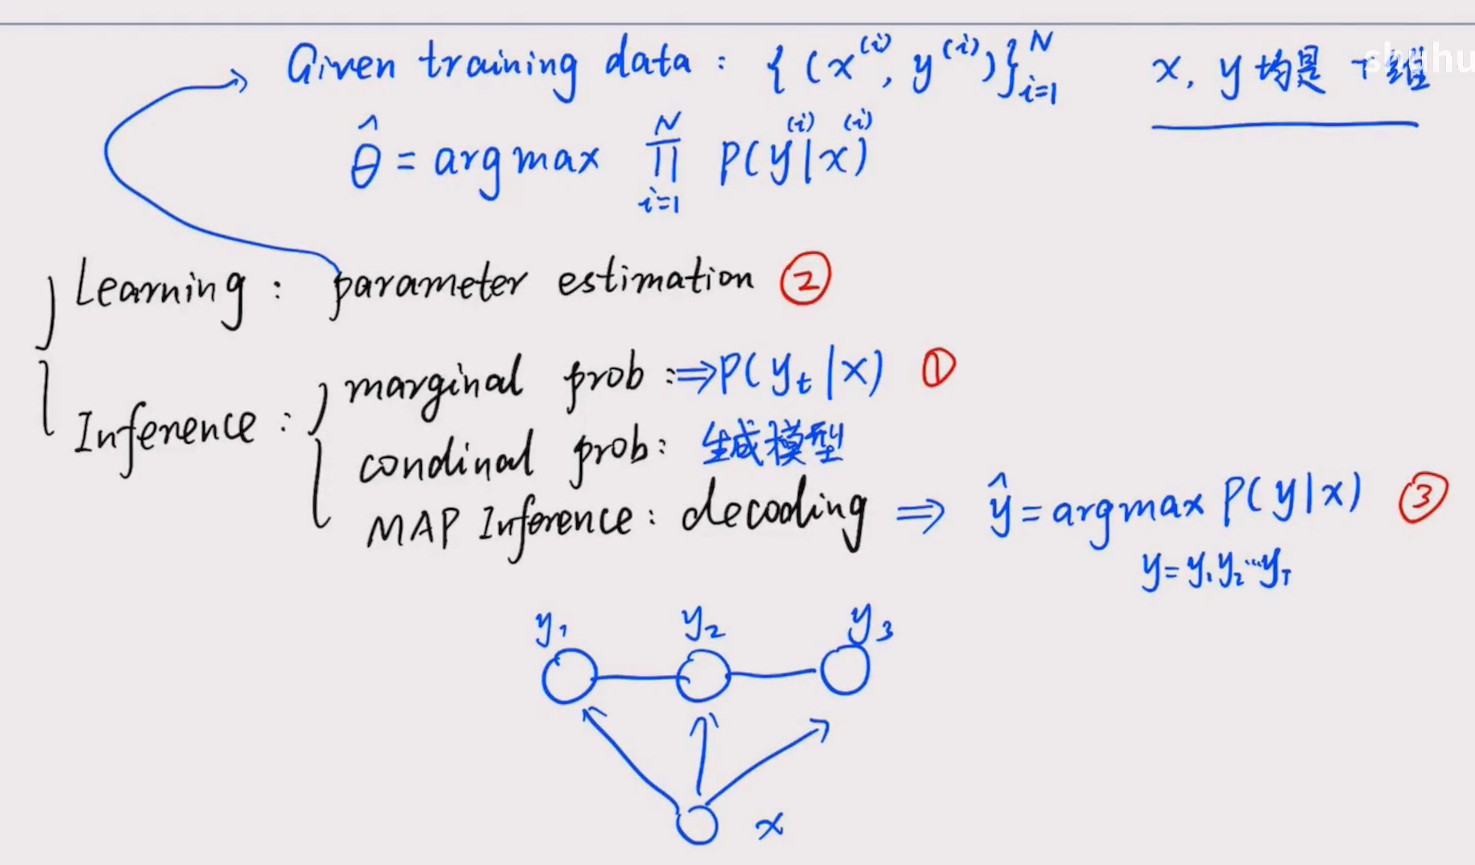 Given training data : {(x^(i), y^(i))}_{i=1}^N x, y 均是 T 维
θ̂ = argmax ∏_{i=1}^N P(y^(i)|x^(i))
Learning : parameter estimation ②
Inference : marginal prob : ⇒ P(y_t|x) ①
condinal prob : 生成模型
MAP Inference : decoding ⇒ ŷ = argmax P(y|x) ③
y = y₁y₂…y_T
y₁ y₂ y₃
x